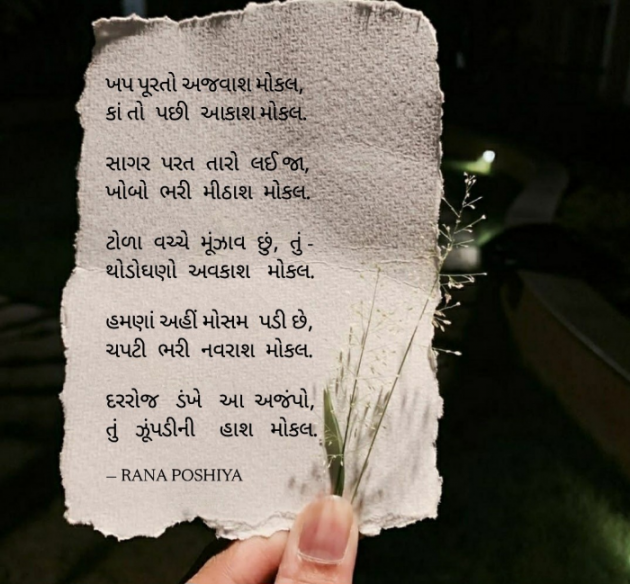 ખપ પૂરતો અજવાશ મોકલ,
કાં તો પછી આકાશ મોકલ.
સાગર પરત તારો લઈ જા,
ખોબો ભરી મીઠાશ મોકલ.
ટોળા વચ્ચે મૂંઝાવ છું, તું -
થોડોઘણો અવકાશ મોકલ.
હમણાં અહીં મોસમ પડી છે,
ચપટી ભરી નવરાશ મોકલ.
દરરોજ ડંખે આ અજંપો,
તું ઝૂંપડીની હાશ મોકલ.
– RANA POSHIYA